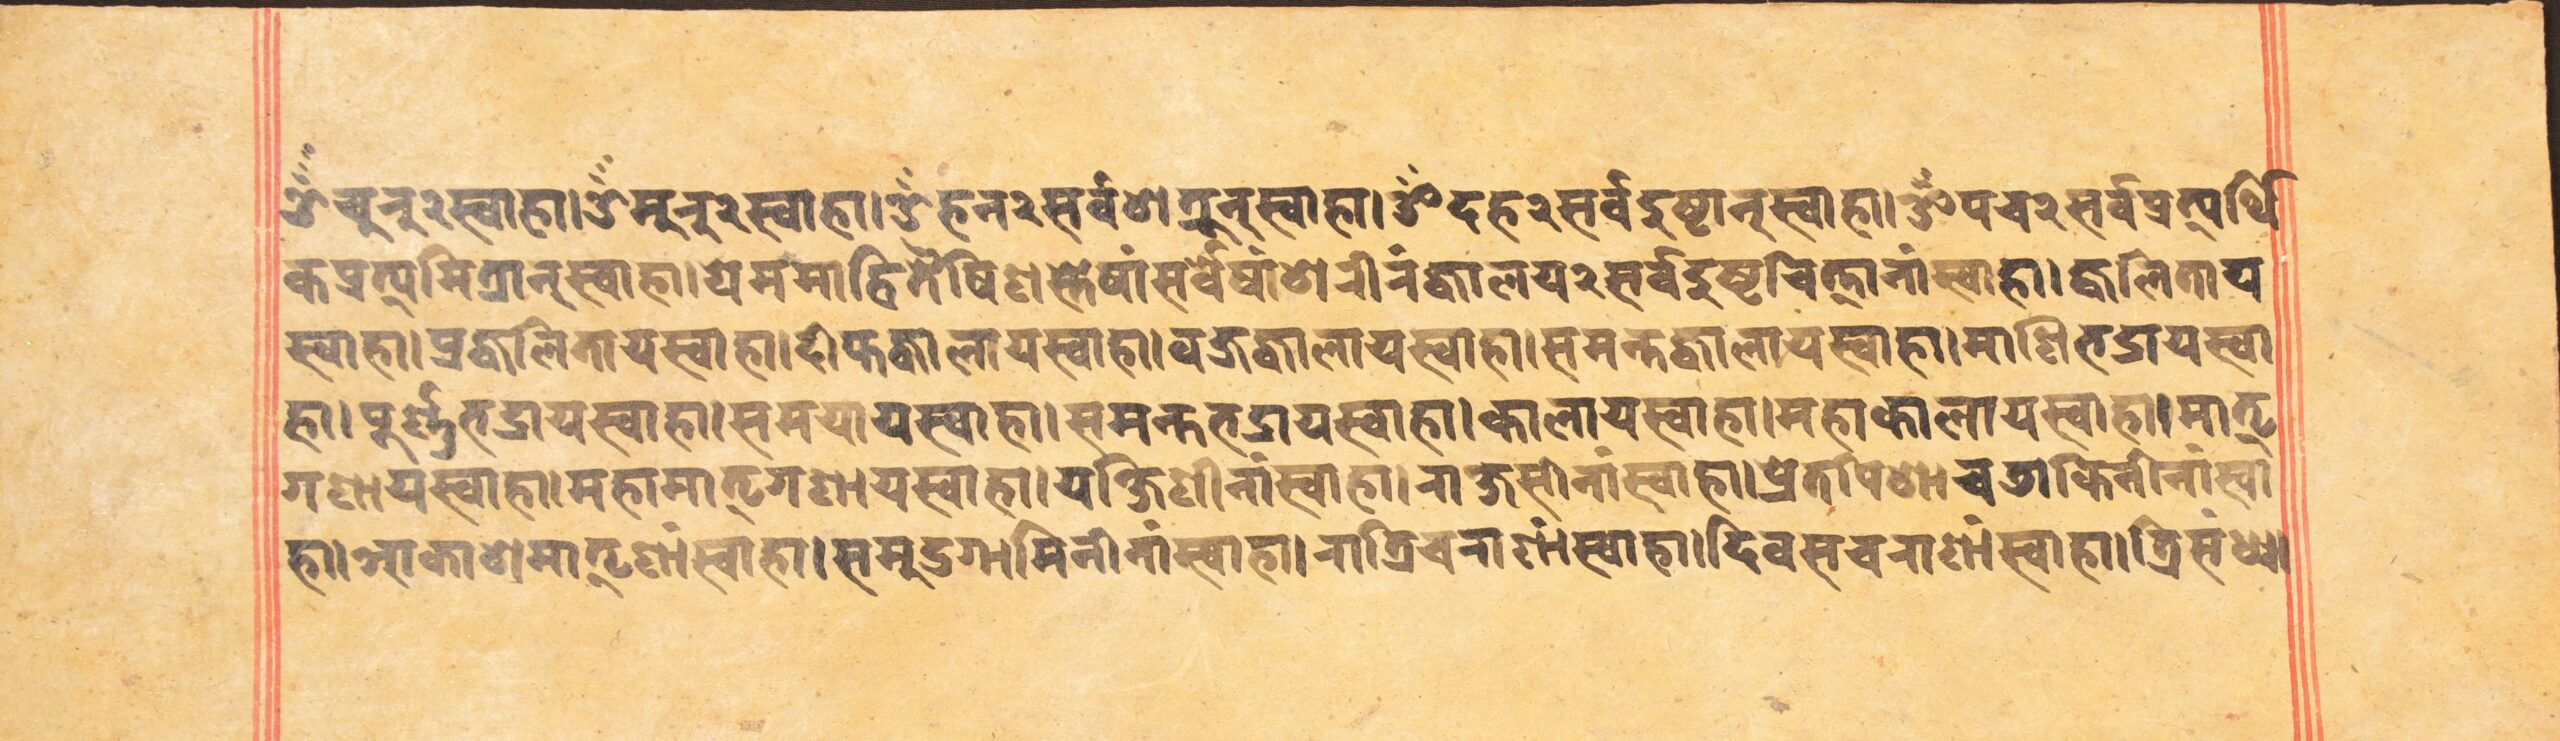 ॐ चुनु२स्वाहा।ॐ मुनु२स्वाहा।ॐ हन२सर्वशत्रुनुस्वाहा।ॐ दह२सर्वदुष्टानुस्वाहा।ॐ पच२सर्वप्रत्यर्थि
कप्रत्यमित्रानुस्वाहा।येममाहितैषिणस्तेषांसर्वेषांशरीरंज्वालय२सर्वदुष्टचित्तानांस्वाहा।ज्वलिताय
स्वाहा।प्रज्वलितायस्वाहा।दीप्तज्वालायस्वाहा।वज्रज्वालायस्वाहा।समन्तज्वालायस्वाहा।माणिभद्रायस्वा
हा।पूर्ण्णभद्रायस्वाहा।समयायस्वाहा।समन्तभद्रायस्वाहा।कालायस्वाहा।महाकालायस्वाहा।मातृ
गणायस्वाहा।महामातृगणायस्वाहा।यक्षिणीनांस्वाहा।राक्षसीनांस्वाहा।प्रेतपिशाचडाकिनीनांस्वा
हा।आकाशमातृणांस्वाहा।समुद्रगामिनीनांस्वाहा।रात्रिचराणांस्वाहा।दिवसचराणांस्वाहा।त्रिसंध्य।